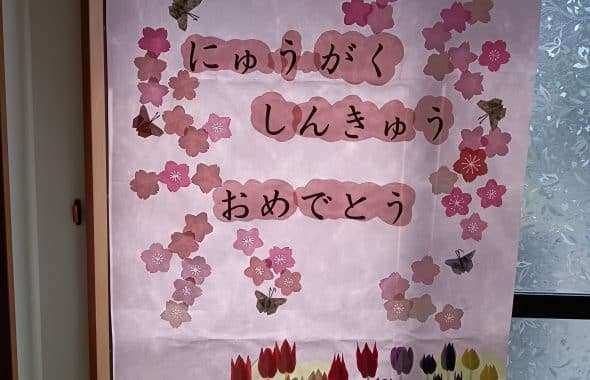 にゅうがく
しんきゅう
おめでとう